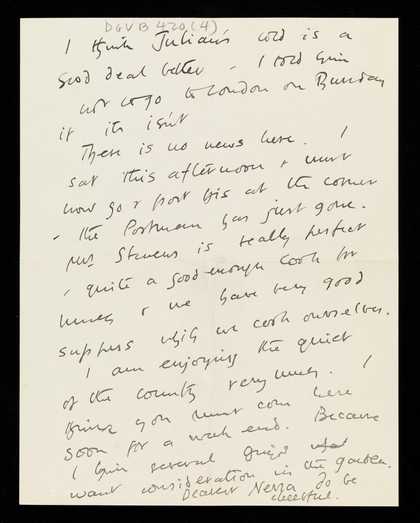 DGVB 420(4)
I think Julian's cold is a
good deal better - I told him
not to go to London on Tuesday
if it isn't
There is no news here. I
sat this afternoon & must
now go & post this at the corner
- the Postman has just gone.
Mrs Stevens is really perfect
- quite a good enough cook for
lunch & we have very good
suppers which we cook ourselves.
I am enjoying the quiet
of the country very much. I
think you must come here
soon for a week end. Because
I think several things
want consideration in the garden.
Dearest Nessa do be
cheerful.